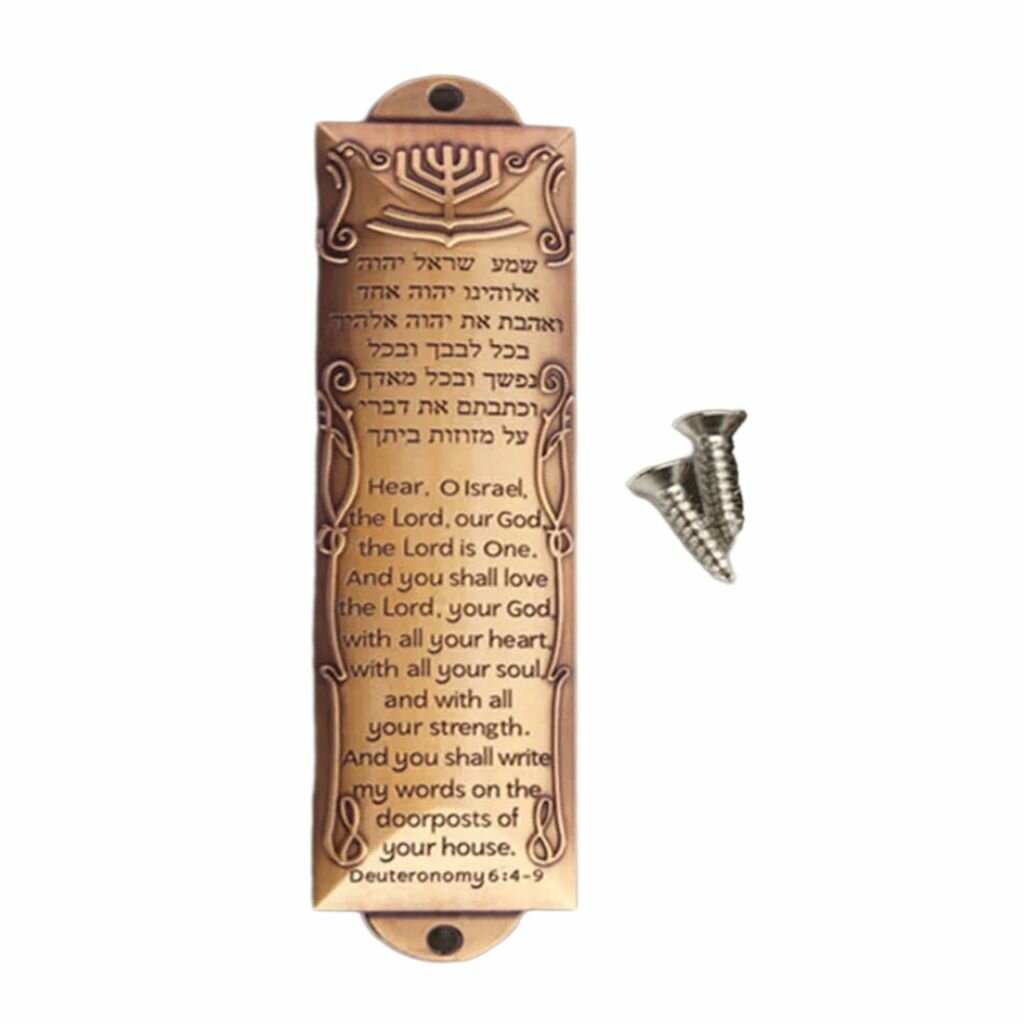 שמע שראל יהוה
אלוהינו יהוה אחד
ואהבת את יהוה אלהיך
בכל לבבך ובכל
נפשך ובכל מאדך
וכתבתם את דברי
על מזוזות ביתך
Hear, O Israel,
the Lord, our God,
the Lord is One.
And you shall love
the Lord, your God,
with all your heart,
with all your soul,
and with all
your strength.
And you shall write
my words on the
doorposts of
your house.
Deuteronomy 6:4-9